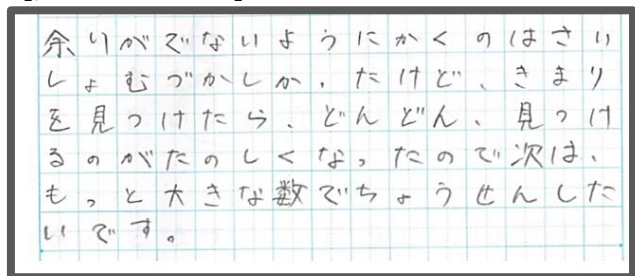 余りがでないようにかくのはさい
しょむづかしかったけど、きまり
を見つけたら、どんどん、見つけ
るのがたのしくなったので次は、
もっと大きな数でちょうせんした
いです。